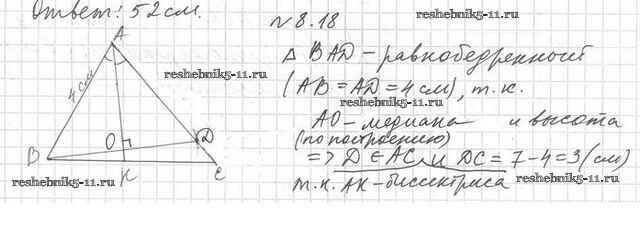 Ответ: 52 см.
№ 8.18
reshebnik5-11.ru
A
Δ BAD - равнобедренный
4 см
reshebnik5-11.ru
(AB = AD = 4 см), т.к.
reshebnik5-11.ru
AO - медиана и высота
(по построению)
O
D
B
K
C
=> D ∈ AC и DC = 7 - 4 = 3 (см)
т.к. AK - биссектриса
reshebnik5-11.ru
reshebnik5-11.ru